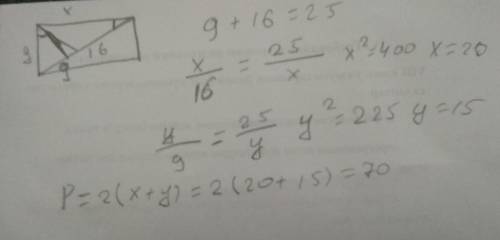 x
y 16
9
9 + 16 = 25
x/16 = 25/x x² = 400 x = 20
y/9 = 25/y y² = 225 y = 15
P = 2(x + y) = 2(20 + 15) = 70